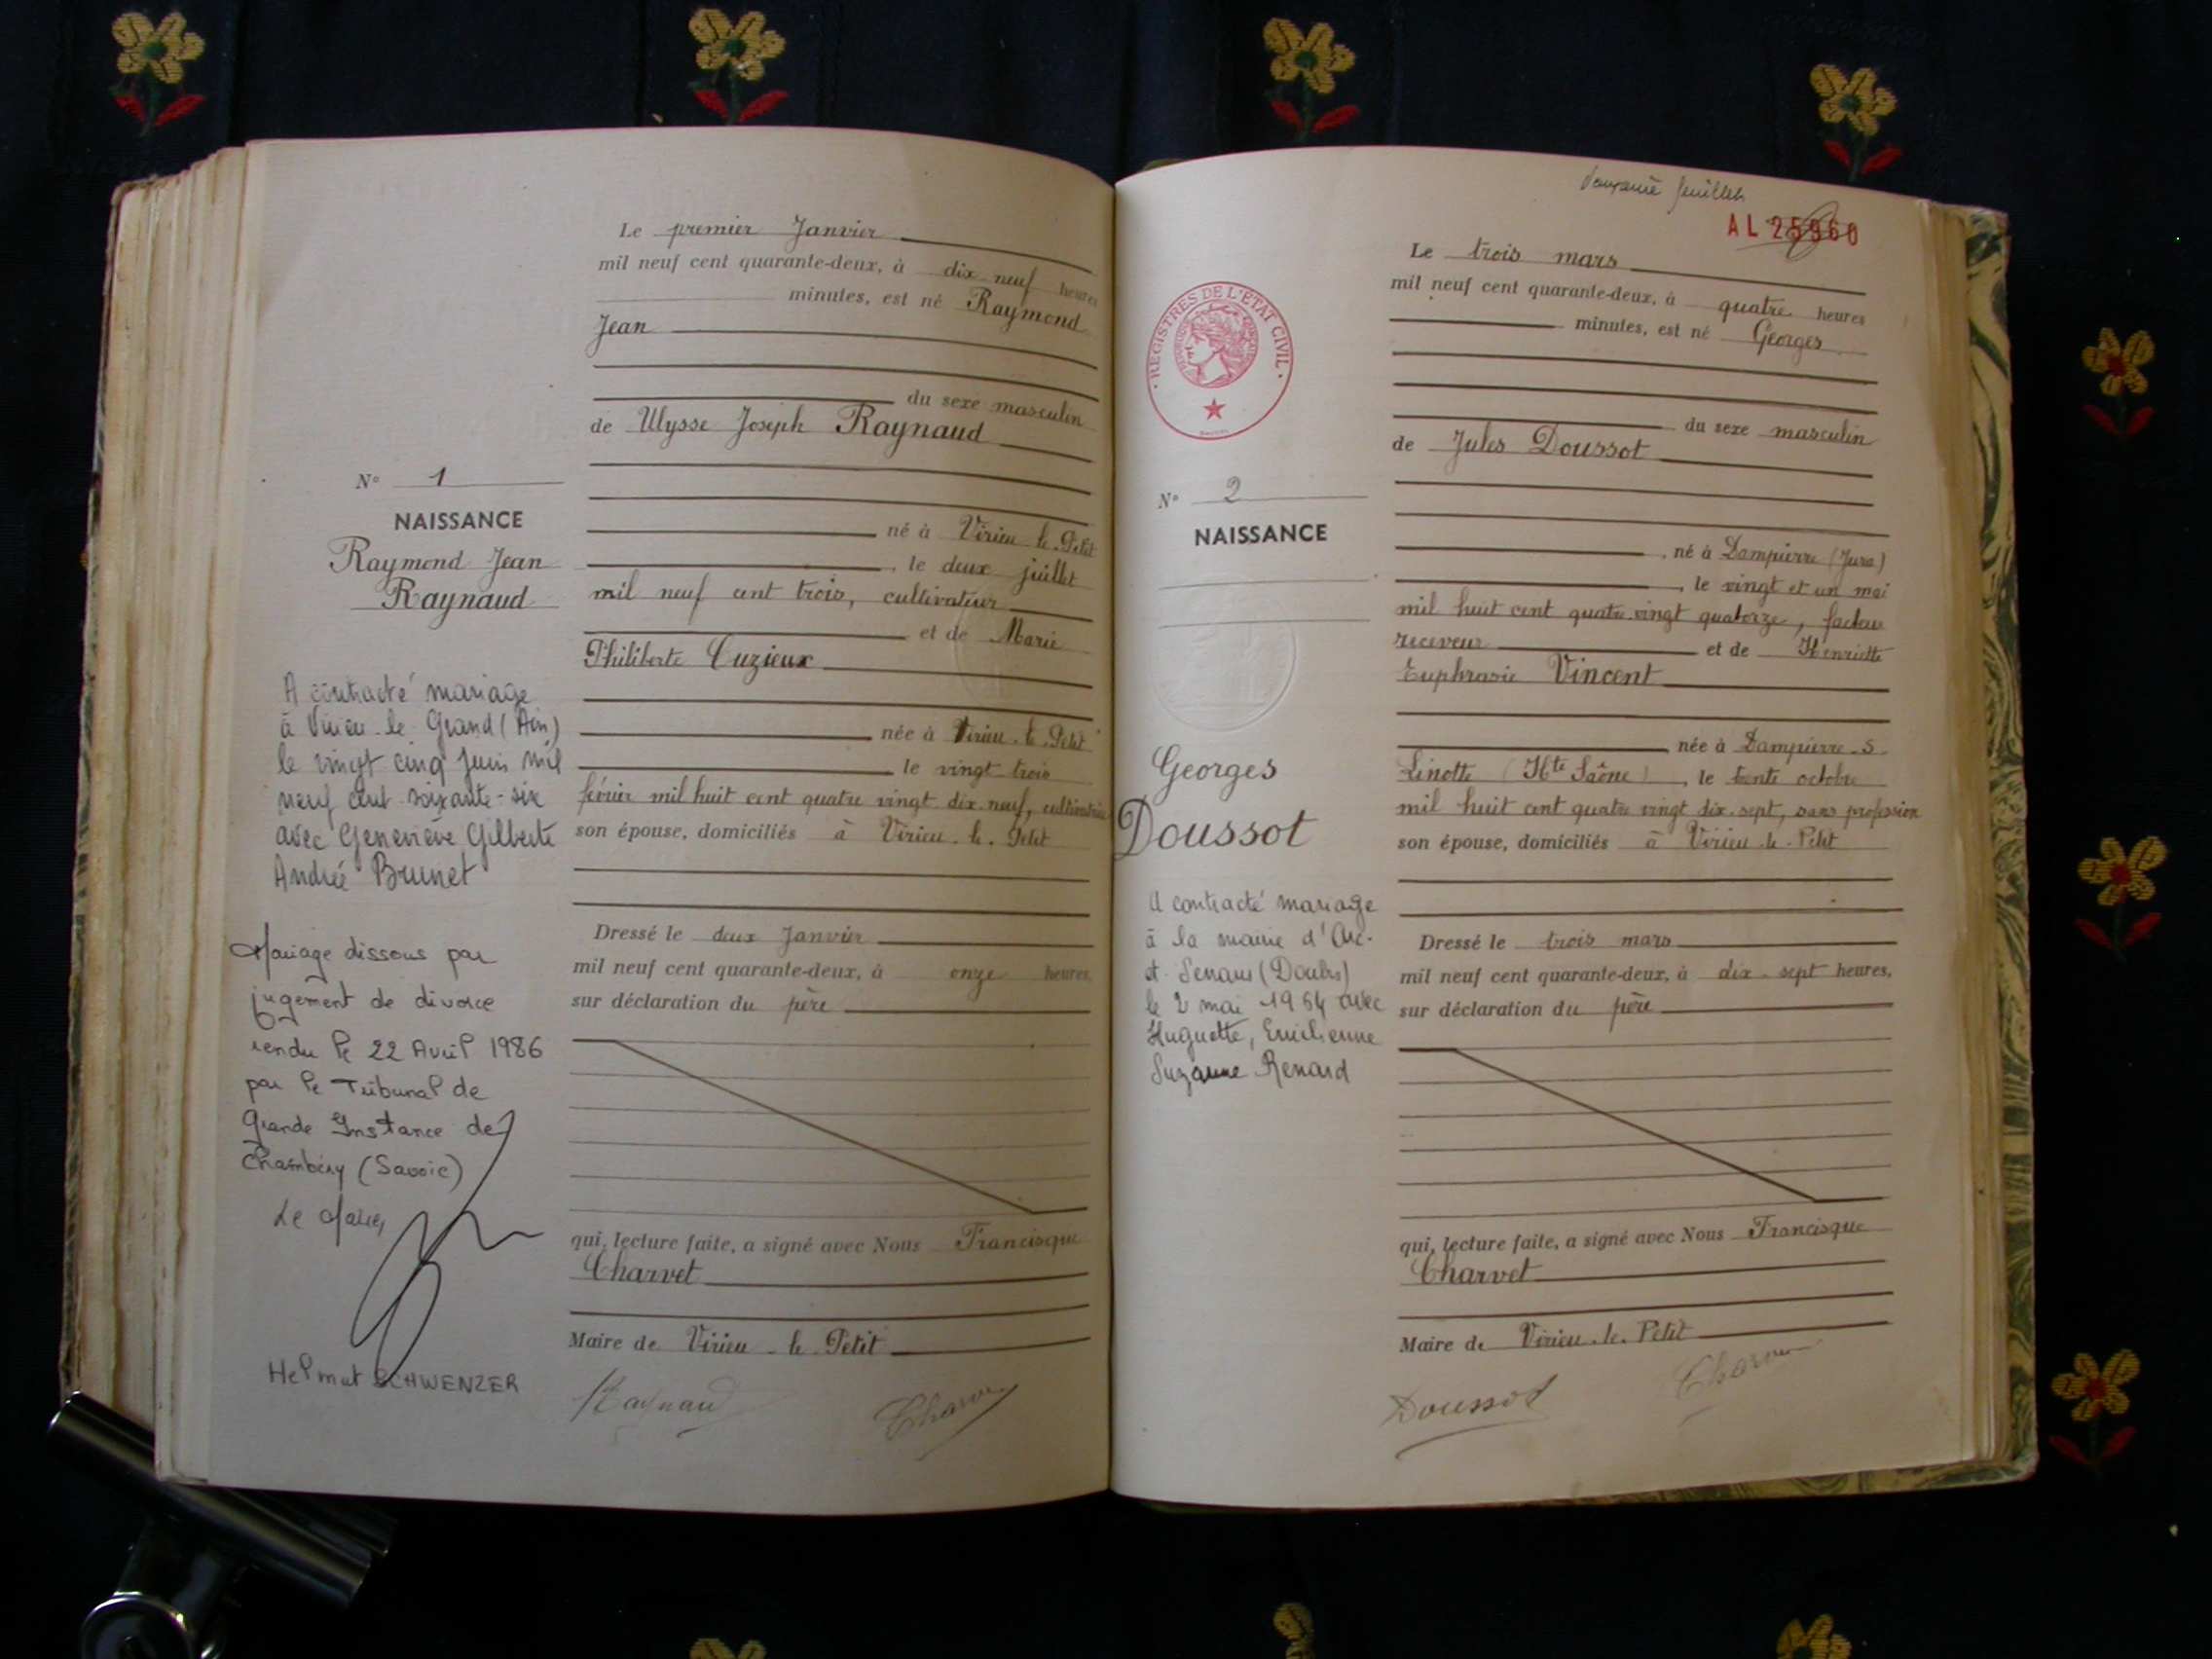 Le premier Janvier
mil neuf cent quarante-deux, à dix neuf heures
minutes, est né Raymond
Jean
du sexe masculin
de Ulysse Joseph Raynaud
né à Virieu le Petit
, le deux juillet
mil neuf cent trois, cultivateur
et de Marie
Philiberte Cuzieux
née à Virieu le Petit
le vingt trois
février mil huit cent quatre vingt dix neuf, cultivatrice
son épouse, domiciliés à Virieu le Petit
Dressé le deux Janvier
mil neuf cent quarante-deux, à onze heures
sur déclaration du père
qui, lecture faite, a signé avec Nous Francisque
Charvet
Maire de Virieu le Petit
Raynaud Charvet
N° 1
NAISSANCE
Raymond Jean
Raynaud
A contracté mariage
à Virieu-le-Grand (Ain)
le vingt cinq juin mil
neuf cent soixante-six
avec Geneviève Gilberte
Andrée Brunet
Mariage dissous par
jugement de divorce
rendu le 22 Avril 1986
par le Tribunal de
Grande Instance de
Chambéry (Savoie)
Le Maire,
Helmut SCHWENZER
feuillet
AL 25960
Le trois mars
mil neuf cent quarante-deux, à quatre heures
minutes, est né Georges
du sexe masculin
de Jules Doussot
né à Dampierre (Jura)
, le vingt et un mai
mil huit cent quatre vingt quatorze, facteur
receveur et de Henriette
Euphrasie Vincent
née à Dampierre-s-
Linotte (Hte Saône), le trente octobre
mil huit cent quatre vingt dix-sept, sans profession
son épouse, domiciliés à Virieu-le-Petit
Dressé le trois mars
mil neuf cent quarante-deux, à dix-sept heures,
sur déclaration du père
qui, lecture faite, a signé avec Nous Francisque
Charvet
Maire de Virieu-le-Petit
Doussot Charvet
REGISTRES DE L'ETAT CIVIL
N° 2
NAISSANCE
Georges
Doussot
A contracté mariage
à la mairie d'Arc-
et-Senans (Doubs)
le 2 mai 1964 avec
Huguette, Emilienne
Suzanne Renard